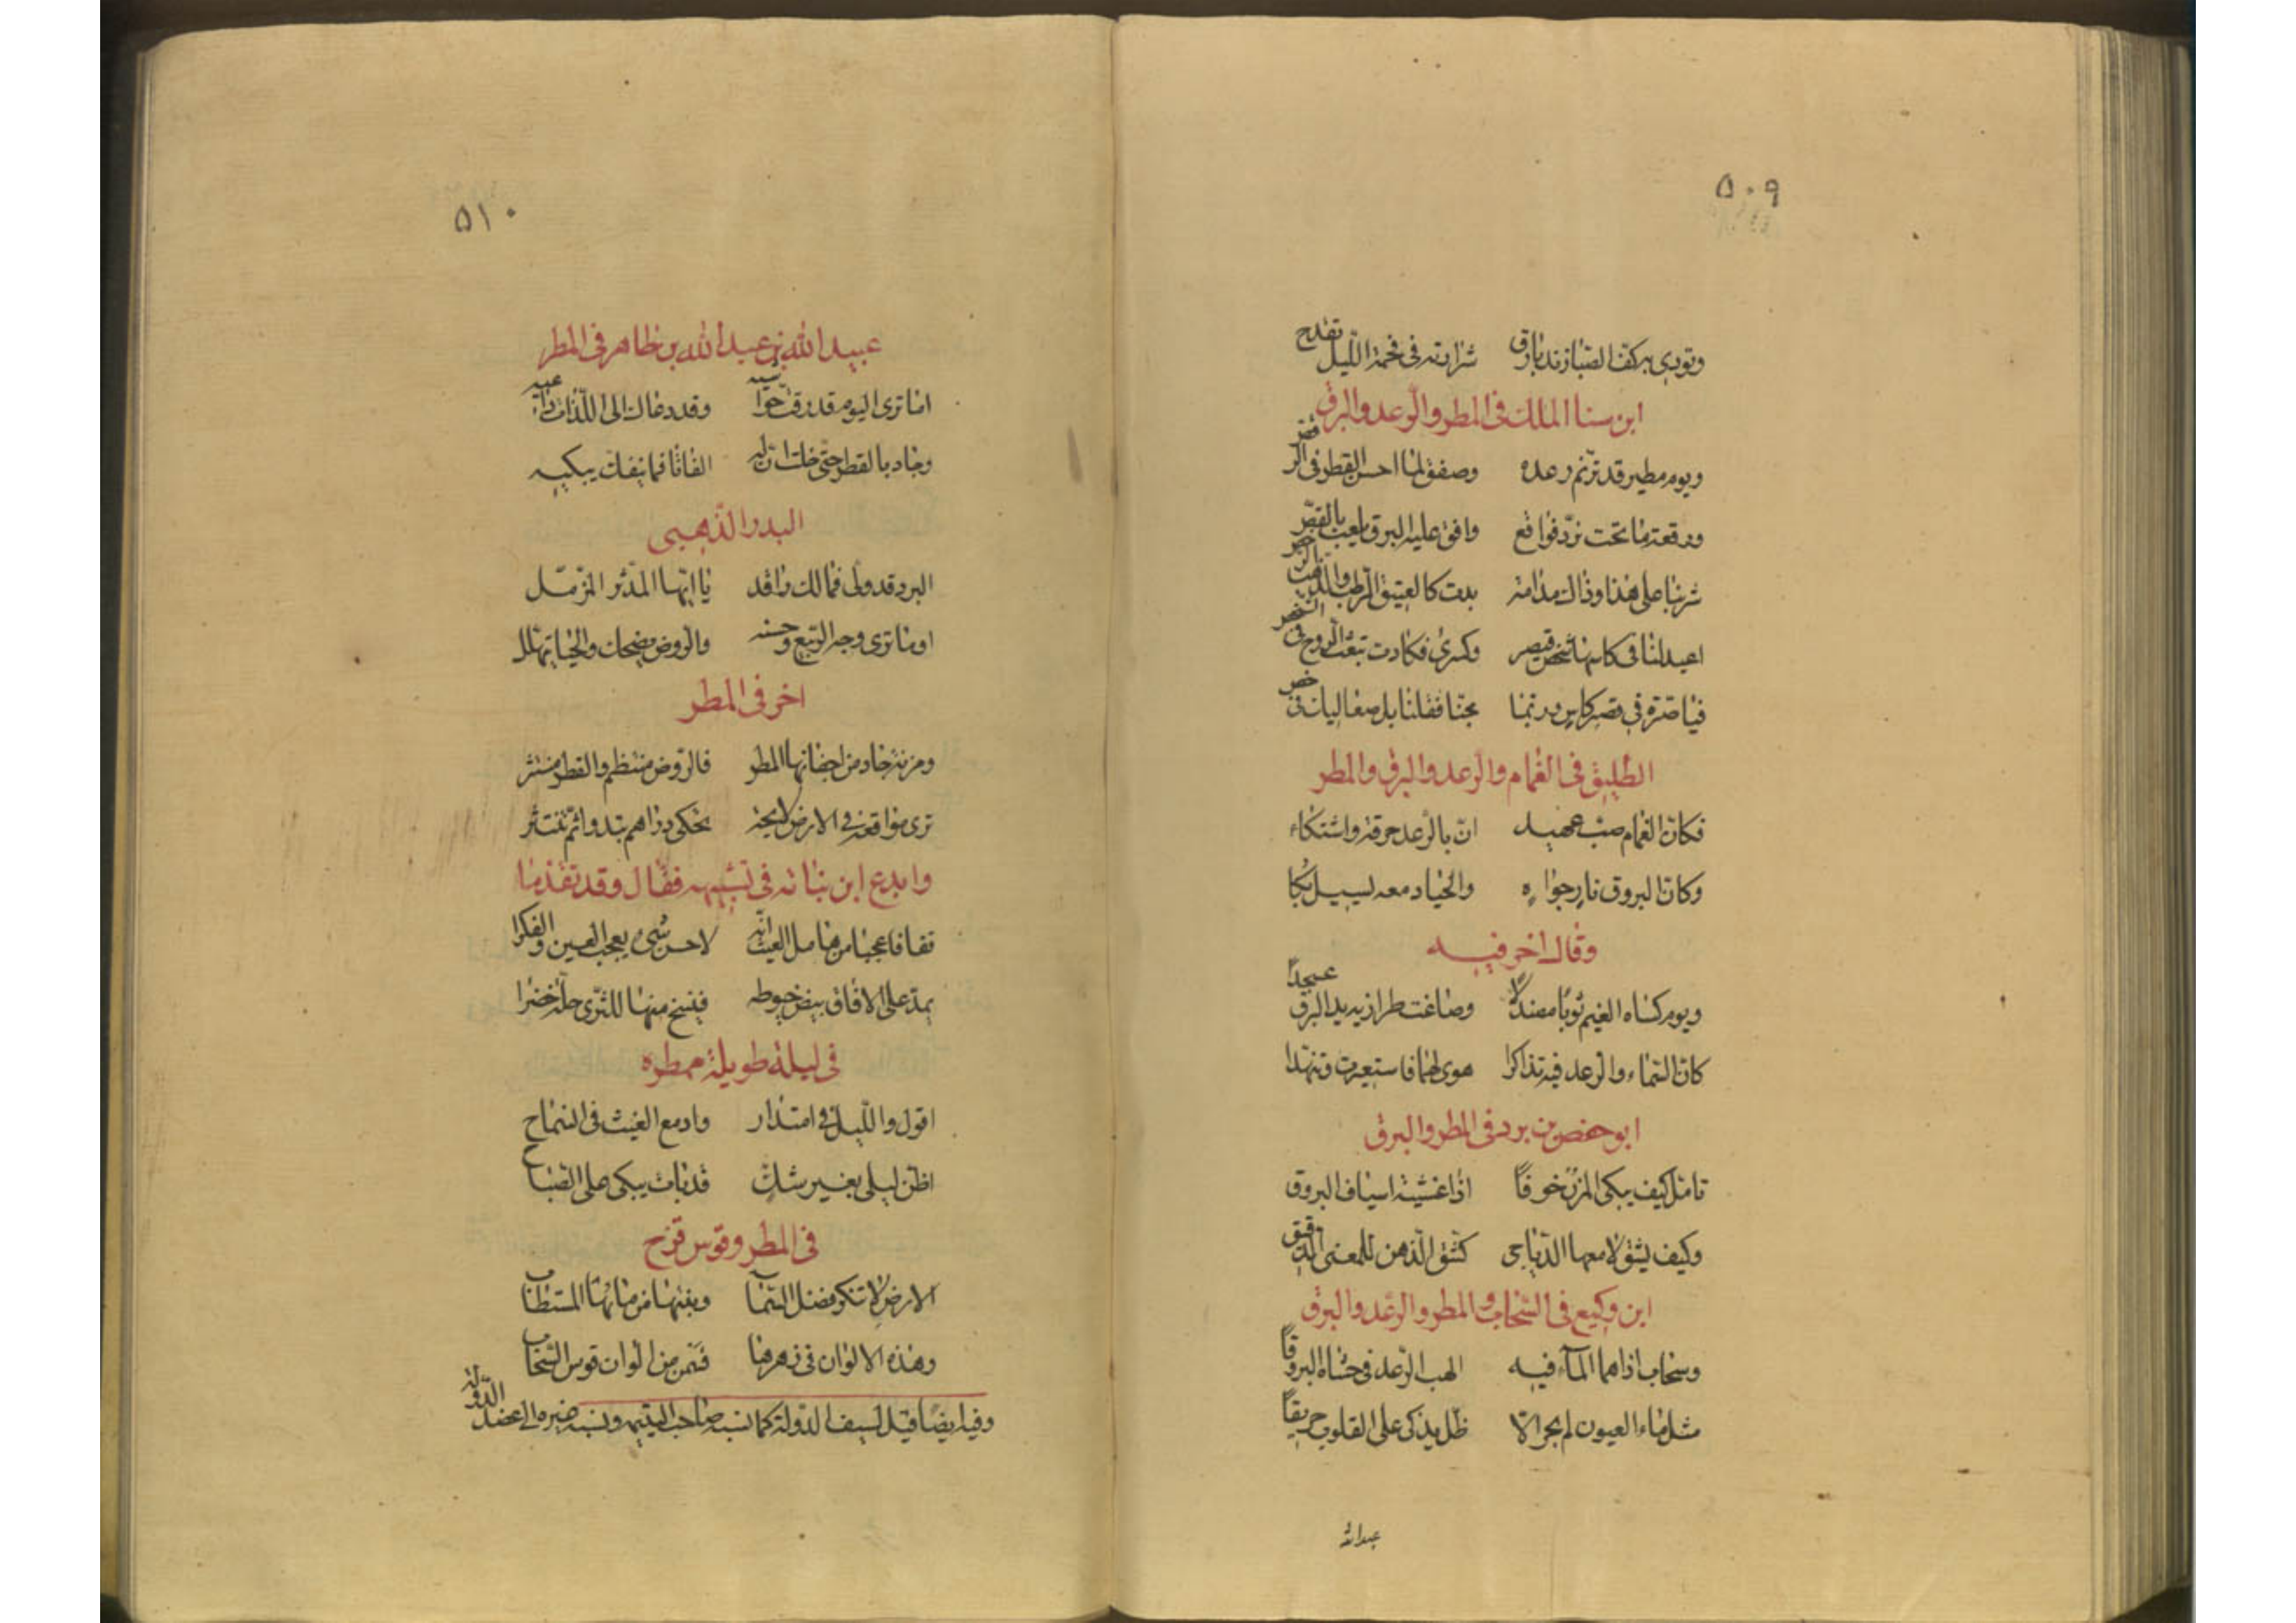 ٥٠٩
وتوري بركف الصبا زند بارق شرارته في فحمة الليل تقدح
ابن سنا الملك في المطر والرعد والبرق
ويوم مطير قد ترنم رعده وصفق لما احسن القطر في
ورقعة ما تحت نرد فواقع وافق عليه البرق يلعب بالقمر
شربنا على هذا وذاك مدامة بدت كالعتيق الرطب والذهب
اعيد لنا في كاسها شخص قيصر وكسرى فكادت تبعث الروح في
فيا صورة في قصر كاس وربما بل صغاليات في
الطليق في الغمام والرعد والبرق والمطر
فكان الغمام صب عميد ان بالرعد حرقة واشتكاء
وكان البروق نار جواه والحيا دمعه يسيل بكا
وقال اخر فيه
ويوم كساه الغيم ثوبا مصندلا وصاغت طرازيه يد البرق عسجدا
كان السماء والرعد فيه تذاكرا هوى لهما فاستعبرت وتنهدا
ابو حفص بن برد في المطر والبرق
تامل كيف يبكي المزن خوفا اذا غشيته اسياف البروق
وكيف يشق لامعها الدياجي كشق الذهن للمعنى الدقيق
ابن وكيع في السحاب والمطر والرعد والبرق
وسحاب اذا هما الماء فيه الهب الرعد في حشاه البروقا
مثل ماء العيون لم يجر الا ظل يذكي على القلوب حريقا
عبدالله
٥١٠
عبيد الله بن عبد الله بن طاهر في المطر
اما ترى اليوم قد رقت حواشيه وقد دعاك الى اللذات داعيه
وجاد بالقطر حتى خلت ان له الفا نأى فما ينفك يبكيه
البدر الذهبي
البرد قد ولى فمالك راقد يا ايها المدثر المزمل
اوما ترى وجه الربيع وحسنه والروض يضحك والحيا يتهلل
اخر في المطر
ومزنة جاد من اجفانها المطر فالروض منتظم والقطر منتثر
ترى مواقعه في الارض لايحة تحكي دراهم تبدو ثم تنتثر
وابدع ابن نباته في تشبيهه فقال وقد تقدما
قفا فاعجبا من هامل الغيث انه لاحسن شيء يعجب العين والفكرا
يمد على الافاق بيض خيوطه فينسج منها للثرى حلة خضرا
في ليلة طويلة ممطره
اقول والليل في امتداد وادمع الغيث في انسفاح
اظن ليلي بغير شك قد بات يبكي على الصباح
في المطر وقوس قزح
الارض لا تنكر فضل السما وغيثها من مائها المستطاب
وهذه الالوان في زهرها فهي من الوان قوس السحاب
وفيه ايضا قيل لسيف الدولة كما نسبه صاحب اليتيمه ونسبه غيره الى عضد الدوله